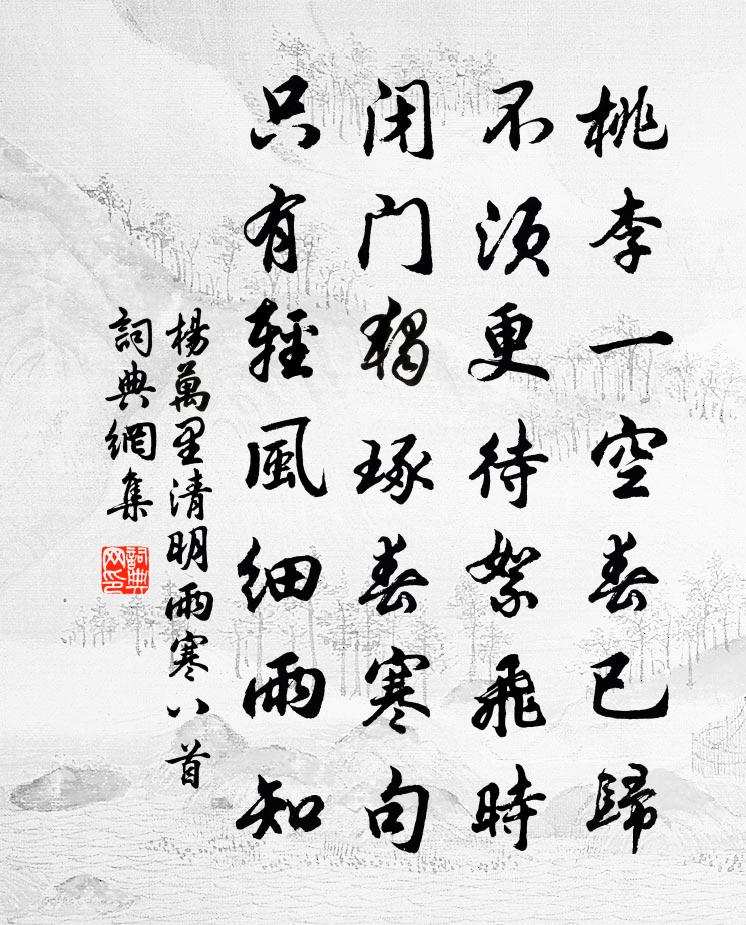 桃李一空春已歸
不須更待絮飛時
闭门獨琢春寒句
只有輕風細雨知
楊萬里清明雨寒八首
詞典網集
詞典
网印